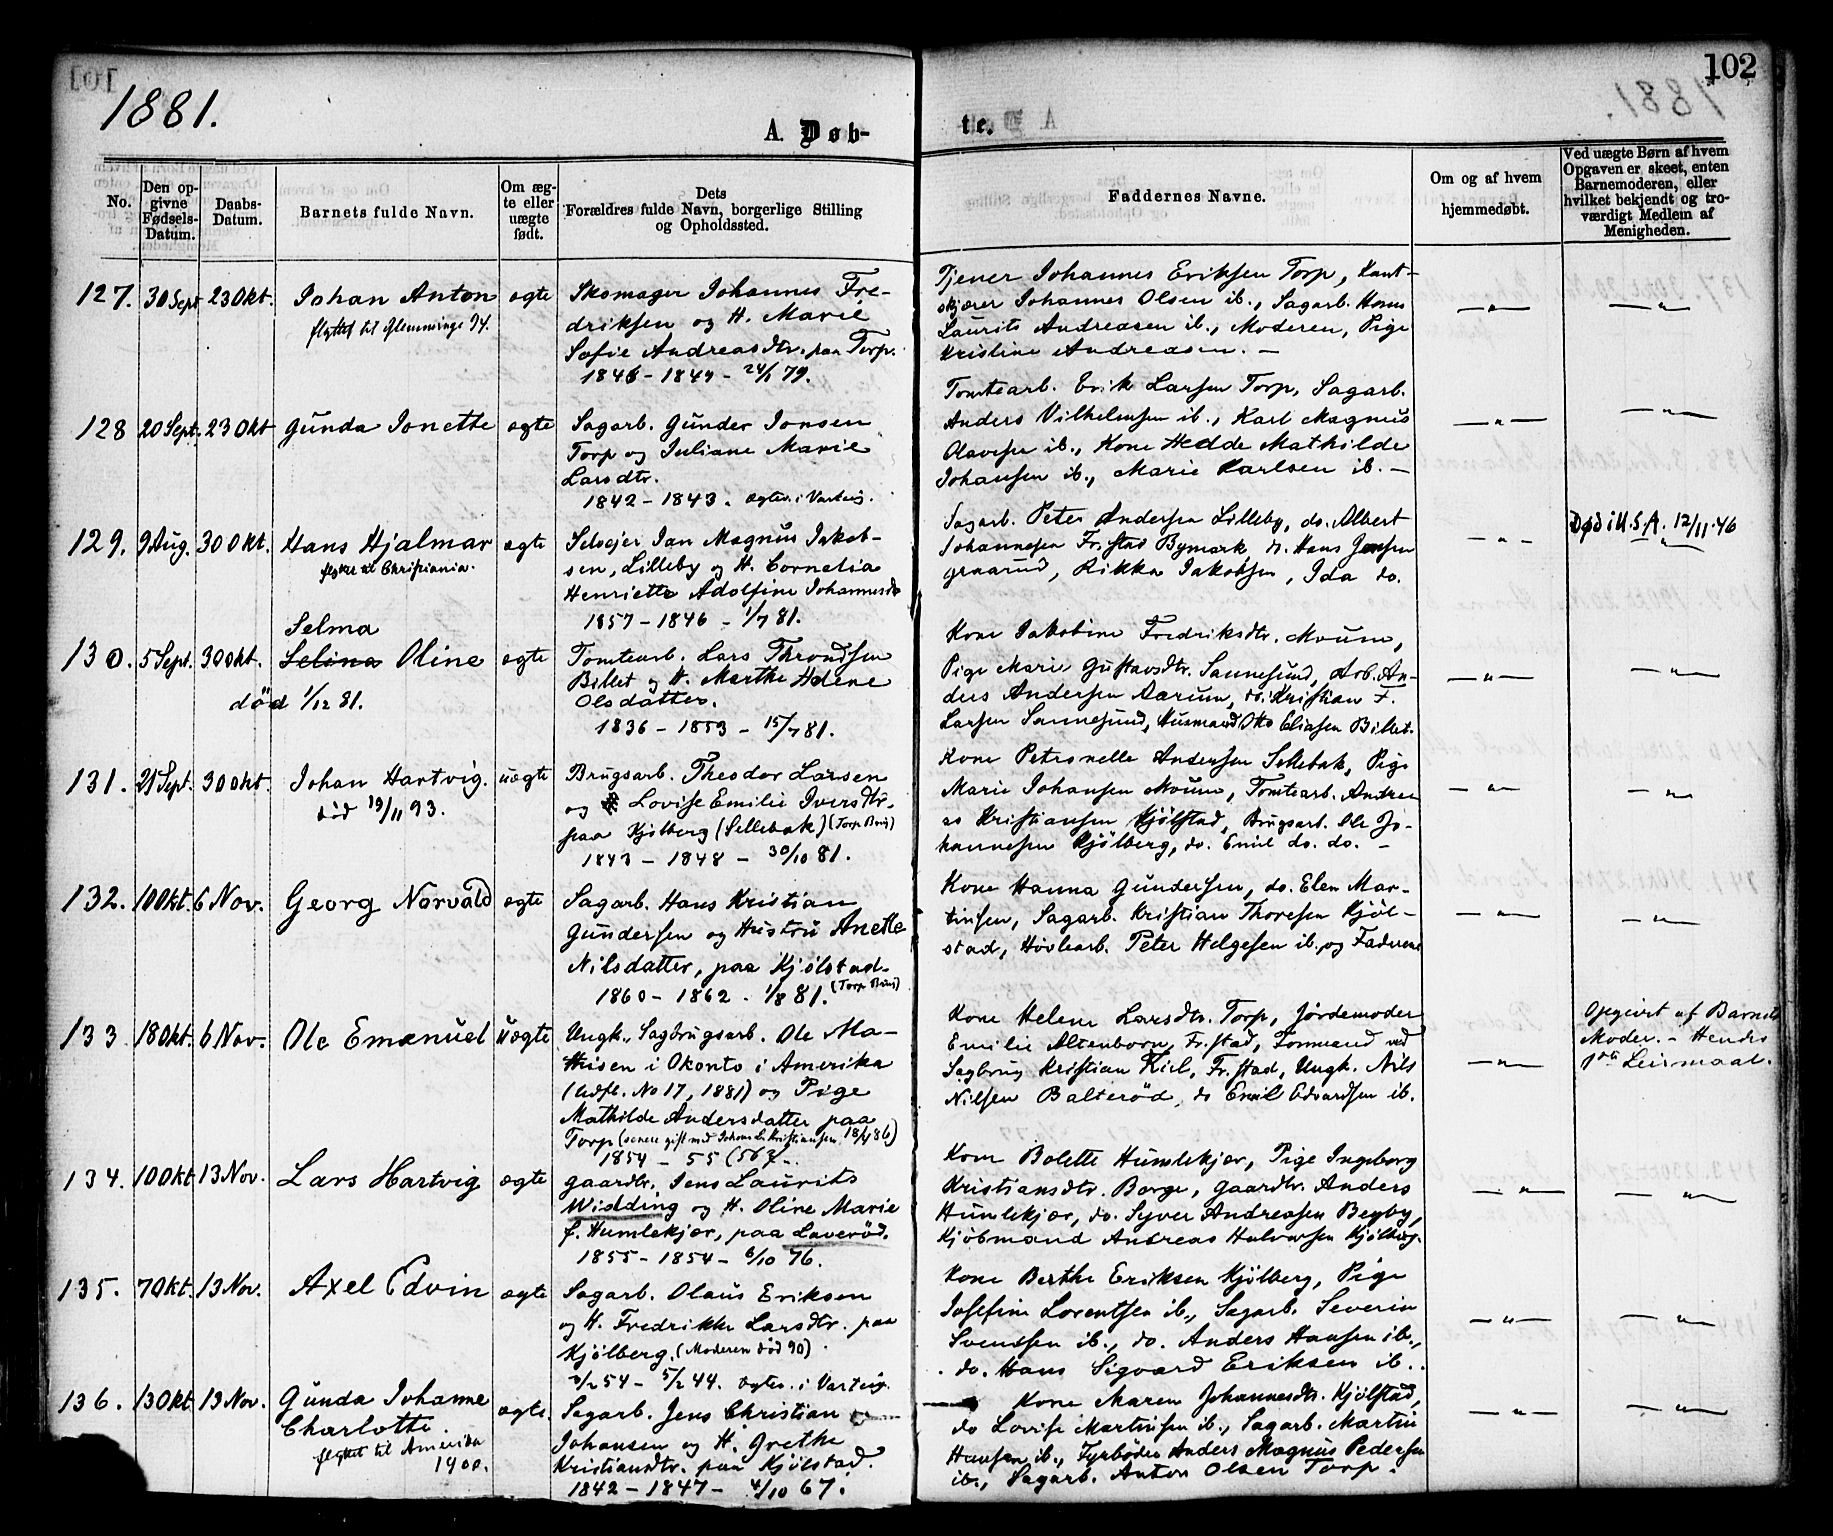 1881.
102
A. Døb-
te.
No.
Den op-
givne
Fødsels-
Datum.
Daabs-
Datum.
Barnets fulde Navn.
Om æg-
te eller
uægte
født.
Dets
Forældres fulde Navn, borgerlige Stilling
og Opholdssted.
Faddernes Navne.
Om og af hvem
hjemmedøbt.
Ved uægte Børn af hvem
Opgaven er skeet, enten
Barnemoderen, eller
hvilket bekjendt og tro-
værdigt Medlem af
Menigheden.
127. 30 Sept 23 Okt. Johan Anton ægte
flyttet til Glemminge 94.
Skomager Johannes Fre-
driksen og H. Marie
Sofie Andreasdtr. paa Torp.
1846 - 1849 - 24/1 79.
Tjener Johannes Eriksen Torp, Kant-
skjærer Johannes Olsen ib., Sagarb. Hans
Laurits Andreasen ib., Moderen, Pige
Kristine Andreasen. —
— " — — " —
128 20 Sept. 23 Okt Gunda Jonette ægte
Sagarb. Gunder Jonsen
Torp og Juliane Marie
Larsdtr.
1842 - 1843. ægtev. i Varteig.
Tomtearb. Erik Larsen Torp, Sagarb.
Anders Vilhelmsen ib., Karl Magnus
Olavesen ib., Kone Hedde Mathilde
Johansen ib., Marie Karlsen ib. —
— " — — " —
129. 9 Aug. 30 Okt. Hans Hjalmar ægte
flyttet til Christiania.
Selveier Jan Magnus Jakob-
sen, Lilleby og H. Cornelia
Henriette Adolfine Johannesdtr
1857 - 1846 - 1/7 81.
Sagarb. Peter Andersen Lilleby, do. Albert
Johannesen Fr.stad Bymark, do. Hans Jensen
Graarud, Rikka Jakobsen, Ida do.
— " — Død i U.S.A. 12/11.46
— " —
Selma
130. 5 Sept. 30 Okt. Selina Oline ægte
død 1/12 81.
Tomtearb. Lars Throndsen
Billet og H. Marthe Helene
Olsdatter.
1836 - 1853 - 15/7 81.
Kone Jakobine Fredriksdtr. Moum,
Pige Marie Gustavsdtr. Sannesund, Arb. An-
ders Andersen Aarum, do. Kristian F.
Larsen Sannesund, Husmand Otto Eliasen Billet.
— " — — " —
131. 21 Sept. 30 Okt. Johan Hartvig. uægte
død 19/11 93.
Brugsarb. Theodor Larsen
og H Lovise Emilie Iversdtr.
paa Kjølberg (Sellebak) (Torp Brug)
1843 - 1848 - 30/10 81.
Kone Petronelle Andersen Sellebak, Pige
Marie Johansen Moum, Tomtearb. Andre
as Kristiansen Kjølstad, Brugsarb. Ole Jo-
hannesen Kjølberg, do. Emil do. do. —
— " — — " —
132. 10 Okt. 6 Nov. Georg Norvald ægte
Sagarb. Hans Kristian
Gundersen og Hustru Anette
Nilsdatter, paa Kjølstad.
(Torp Brug)
1860 - 1862 - 1/8 81.
Kone Hanna Gundersen, do. Elen Mar-
tinsen, Sagarb. Kristian Thoresen Kjøl-
stad, Høvlearb. Peter Helgesen ib. og Faderen
— " — — " —
133 18 Okt. 6 Nov. Ole Emanuel uægte
Ungk., Sagbrugsarb. Ole Ma-
thisen i Okonto i Amerika
(Udfl. No 17, 1881) og Pige
Mathilde Andersdatter paa
Torp (senere gift med Kristiansen 86)
1854 - 55 (56?).
Kone Helene Larsdtr. Torp, Jordemoder
Emilie Altenborn, Fr.stad, Formand ved
Sagbrug Kristian Kiel, Fr.stad, Ungk. Nils
Nilsen Balterød, do Emil Edvardsen ib.
— " — Opgivet af Barnets
Moder. - Hendes
1ste Leiermaal.
134. 10 Okt 13 Nov. Lars Hartvig ægte
Gaardbr. Jens Laurits
Widding og H. Oline Marie
f. Humlekjær, paa Laverød.
1855 - 1854 - 6/10 76.
Kone Bolette Humlekjær, Pige Ingeborg
Kristiansdtr. Borge, Gaardbr. Anders
Humlekjær, do. Syver Andreasen Begby,
Kjøbmand Andreas Halvorsen Kjølberg.
— " — — " —
135. 7 Okt. 13 Nov. Axel Edvin ægte
Sagarb. Olaus Eriksen
og H. Fredrikke Larsdtr. paa
Kjølberg. (Moderen død 90).
54 - 5/2 44. ægtev. i Varteig.
Kone Berthe Eriksen Kjølberg, Pige
Josefine Lorentsen ib., Sagarb. Severin
Svendsen ib., do. Anders Hansen ib.,
do. Hans Sigvard Eriksen ib.
— " — — " —
136. 13 Okt 13 Nov. Gunda Johanne ægte.
Charlotte.
flyttet til Amerika
1900.
Sagarb. Jens Christian
Johansen og H. Grethe
Kristiansdtr. paa Kjølstad.
1842 - 1847 - 4/10 67.
Kone Maren Johannesdtr. Kjølstad,
do Lovise Martinsen ib., Sagarb. Martin
Hansen ib., Fyrbøder Anders Magnus Pedersen
ib., Sagarb. Anton Olsen Torp.
— " — — " —